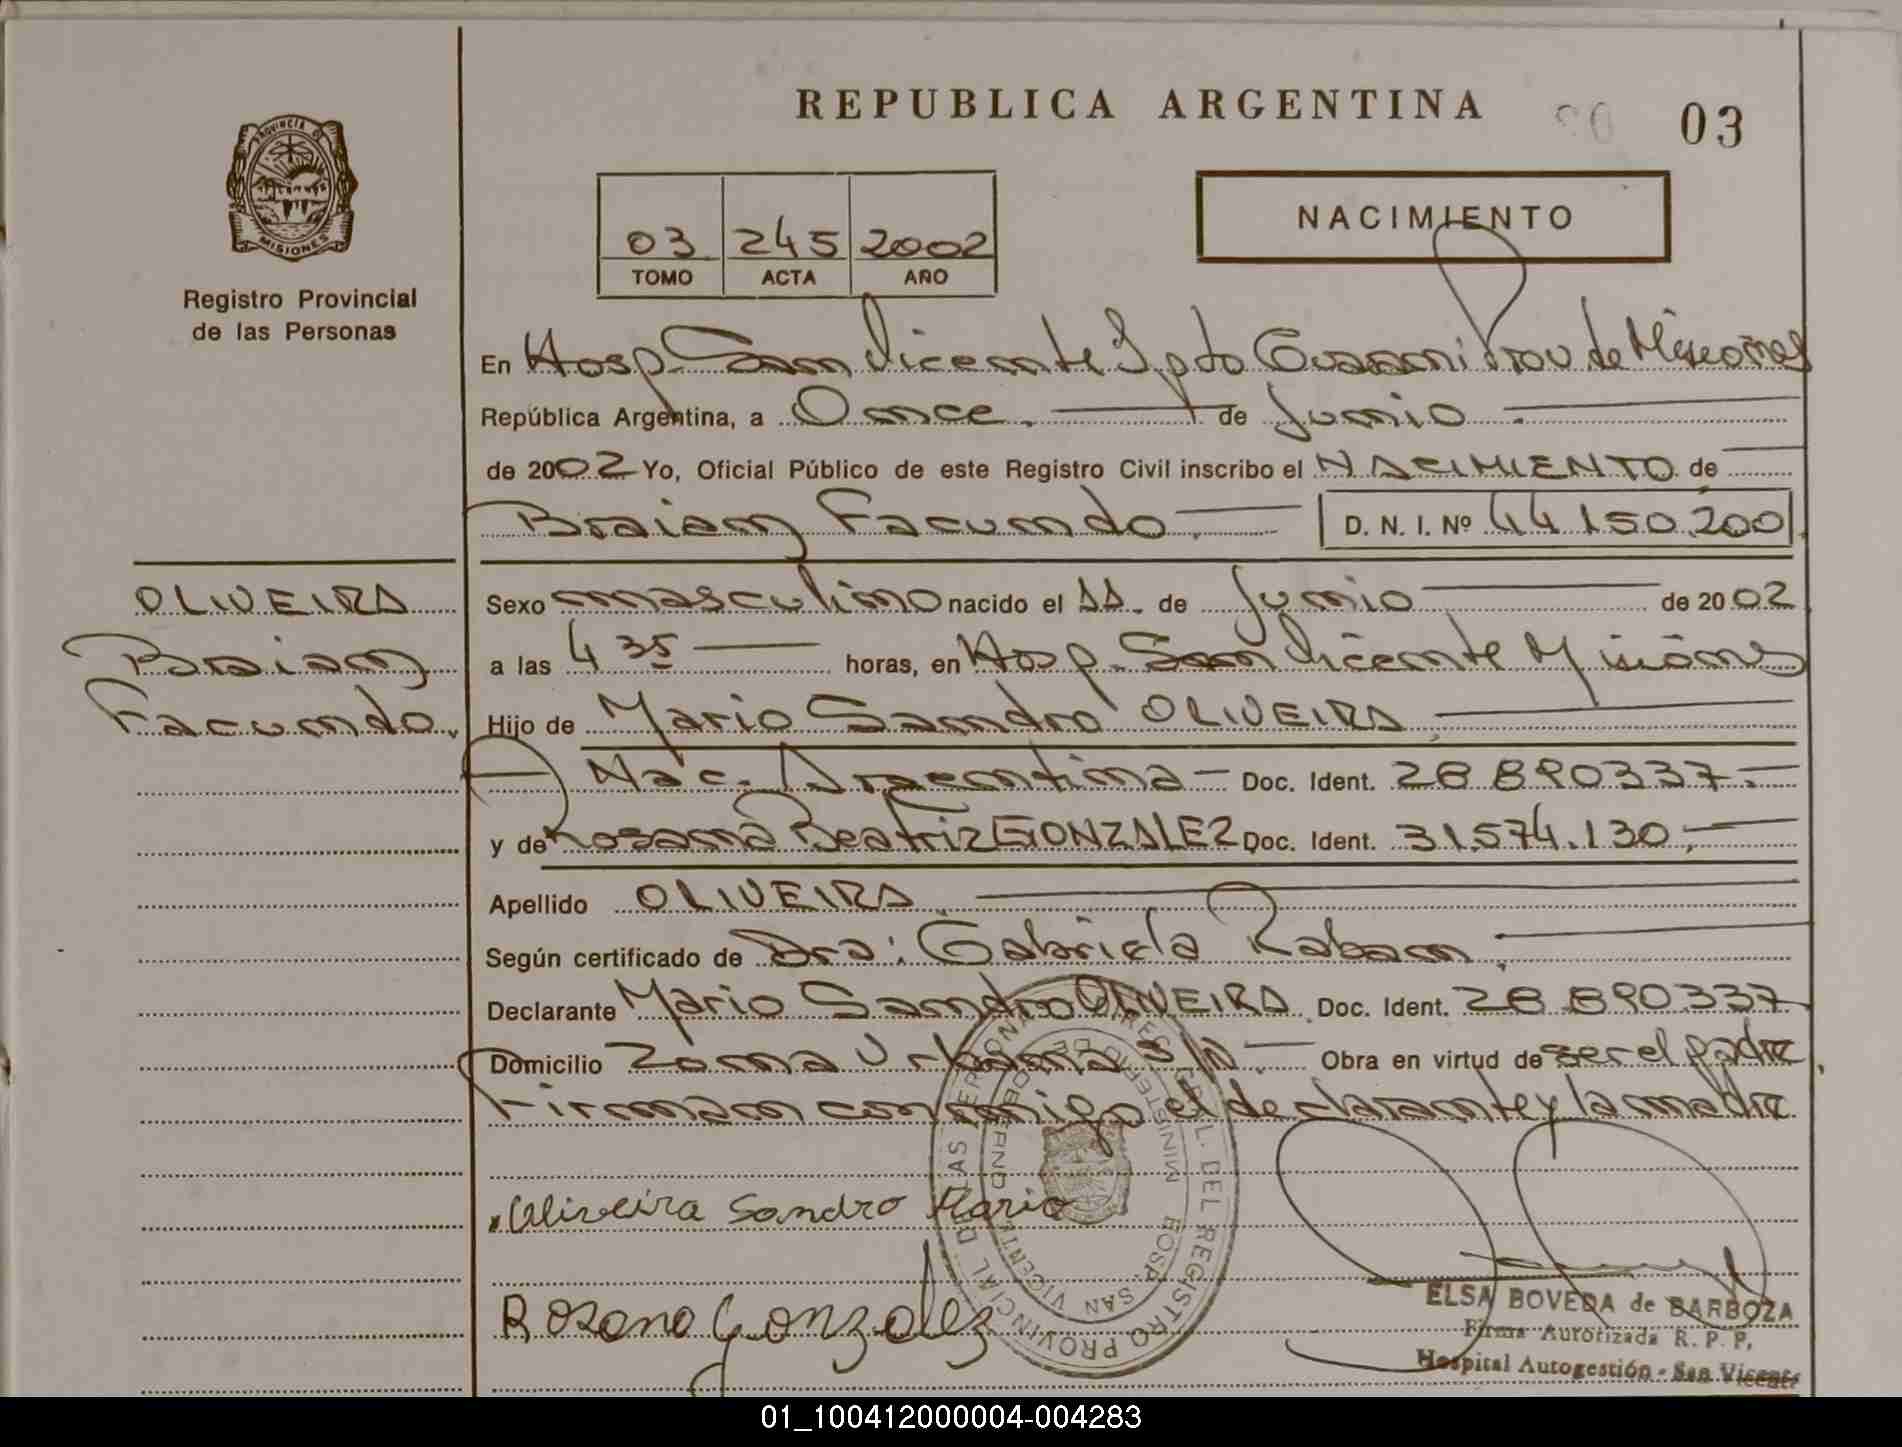 REPUBLICA ARGENTINA
03
PROVINCIA DE
MISIONES
Registro Provincial
de las Personas
03 245 2002
TOMO ACTA AÑO
NACIMIENTO
En Hosp. San Vicente Dpto Guarani Prov de Misiones
República Argentina, a Once. de Junio
de 2002 Yo, Oficial Público de este Registro Civil inscribo el NACIMIENTO de
Braian Facundo D. N. I. Nº 44.150.200
OLIVEIRA
Braian
Facundo.
Sexo masculino nacido el 11. de Junio de 2002
a las 4 35 horas, en Hosp. San Vicente Misiones
Hijo de Mario Sandro OLIVEIRA
Nac. Argentina - Doc. Ident. 28.890.337.-
y de Rosana Beatriz GONZALEZ Doc. Ident. 31.574.130.-
Apellido OLIVEIRA
Según certificado de Dra: Gabriela Raban
Declarante Mario Sandro OLIVEIRA Doc. Ident. 28.890.337
Domicilio Zona Urbana s/n. Obra en virtud de ser el padre.
Firman conmigo el declarante y la madre.
Oliveira Sandro Mario
Rosana Gonzalez
REGISTRO PROVINCIAL DE LAS PERSONAS
MINISTERIO DE GOBIERNO
HOSP. SAN VICENTE
ELSA BOVEDA de BARBOZA
Firma Autorizada R. P. P.
Hospital Autogestión - San Vicente
01_100412000004-004283